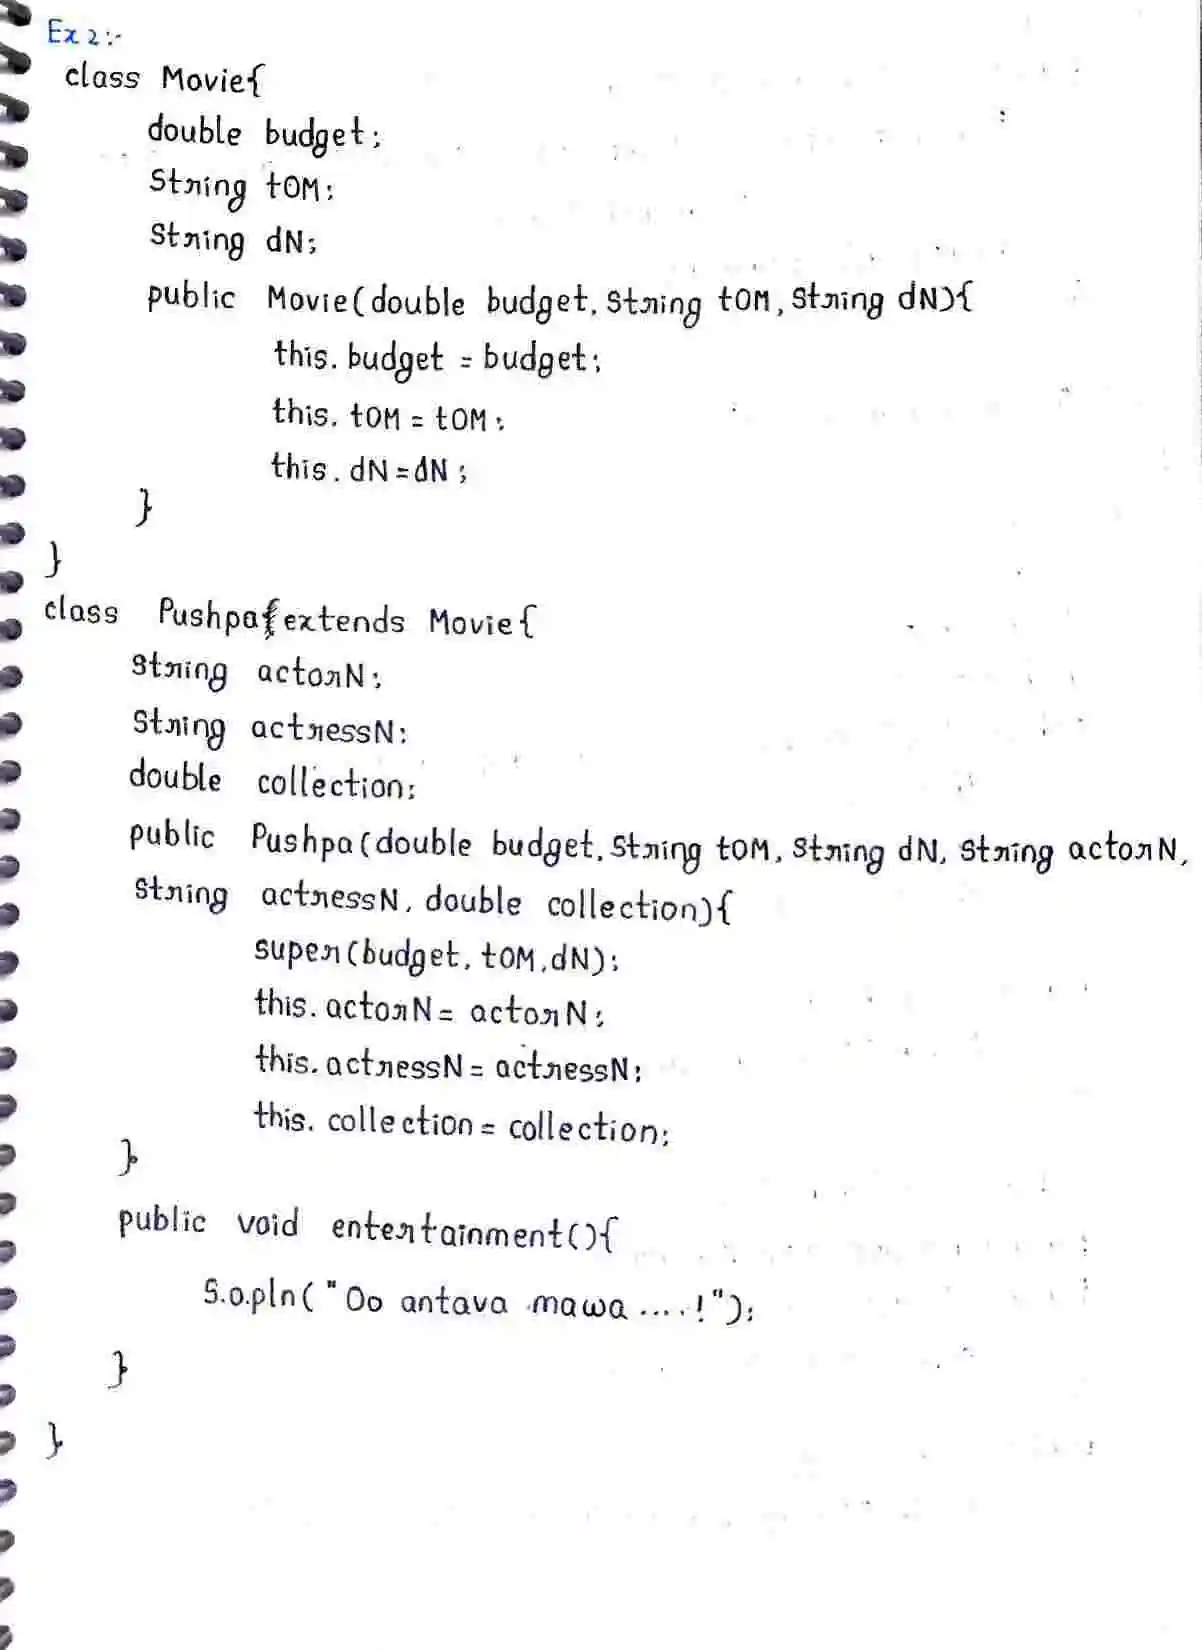 Ex 2:-
class Movie{
double budget;
String tOM;
String dN;
public Movie(double budget, String tOM, String dN){
this.budget = budget;
this.tOM = tOM;
this.dN = dN;
}
}
class Pushpa extends Movie{
String actorN;
String actressN;
double collection;
public Pushpa(double budget, String tOM, String dN, String actorN,
String actressN, double collection){
super(budget, tOM, dN);
this.actorN = actorN;
this.actressN = actressN;
this.collection = collection;
}
public void entertainment(){
S.o.pln("Oo antava mawa ....!");
}
}